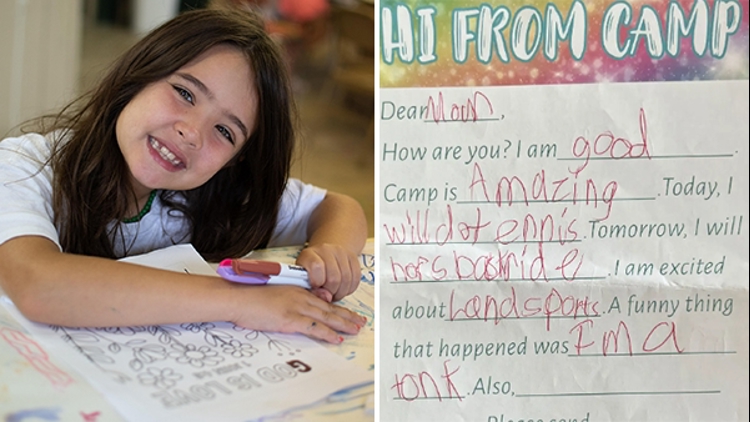 GOD IS LOVE
HI FROM CAMP
Dear Mom,
How are you? I am good.
Camp is Amazing. Today, I
will dot ennis. Tomorrow, I will
hors backride. I am excited
about Landsports. A funny thing
that happened was I'm a
tonk. Also,
Please send